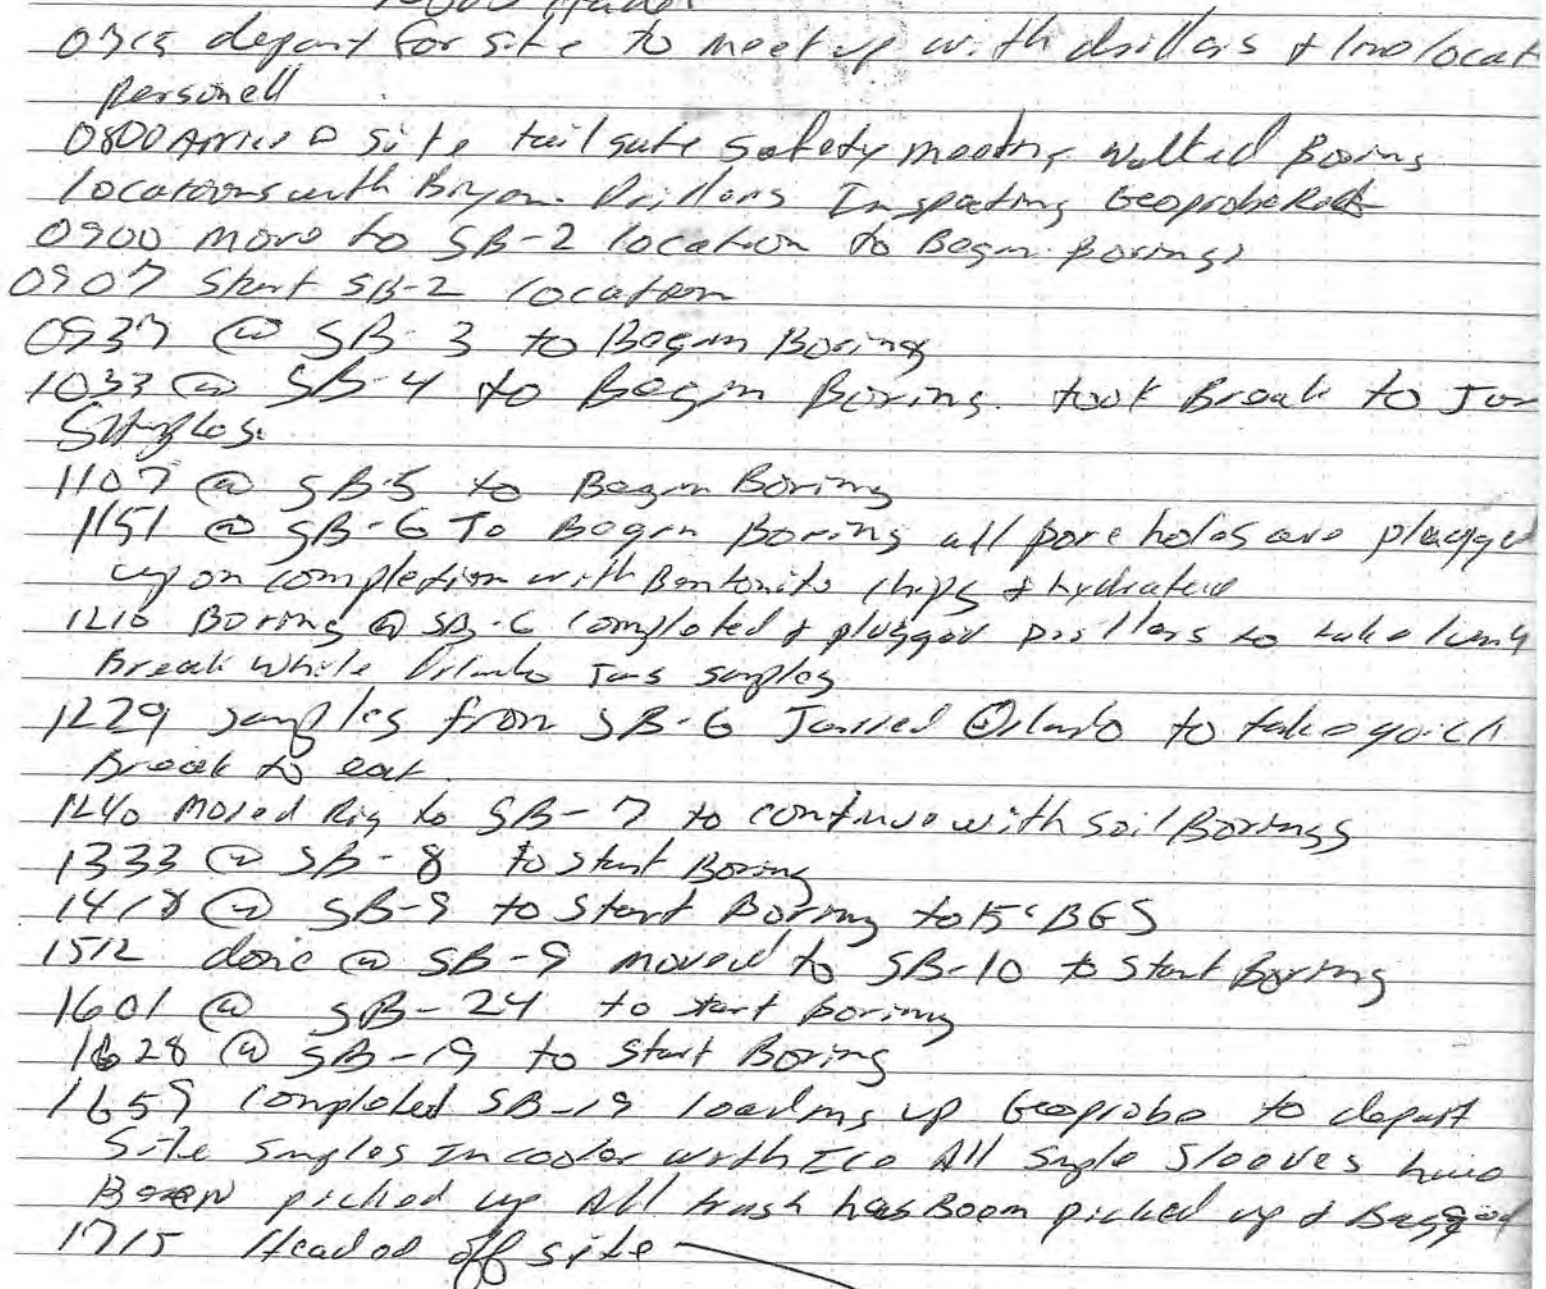 0715 depart for site to meet up with drillers & line locat
personell
0800 Arrive @ site tail gate safety meeting walked Boring
locations with Bryan. Drillers Inspecting Geoprobe
0900 move to SB-2 location to Begin Borings
0907 Start SB-2 location
0937 @ SB-3 to Begin Boring
1033 @ SB-4 to Begin Boring. took Break to Jar
Samples.
1107 @ SB-5 to Begin Boring
1151 @ SB-6 To Begin Boring all bore holes are plugged
upon completion with Bentonite chips & hydrated
1210 Boring @ SB-6 completed & plugged Drillers to take lunch
Break while Orlando Jars samples
1229 samples from SB-6 Jarred Orlando to take a quick
Break to eat.
1240 Moved Rig to SB-7 to continue with soil Borings
1333 @ SB-8 to start Boring
1418 @ SB-9 to start Boring to 15' BGS
1512 done @ SB-9 moved to SB-10 to start Boring
1601 @ SB-24 to start boring
1628 @ SB-19 to start Boring
1659 completed SB-19 loading up Geoprobe to depart
Site Samples In cooler with Ice All Sample Sleeves have
Been picked up All trash has Been picked up & Bagged
1715 Headed off site